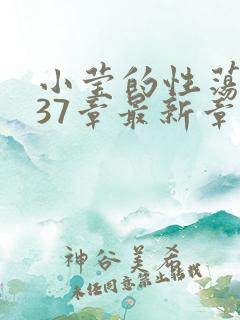 小莹的性荡
37章最新章
神谷美希
未经同意禁止转载